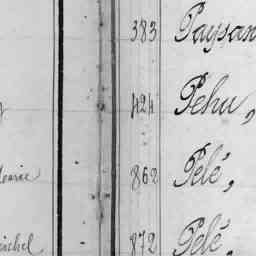 383 Paysan
424 Pehu,
862 Pelé,
872 Pelé,